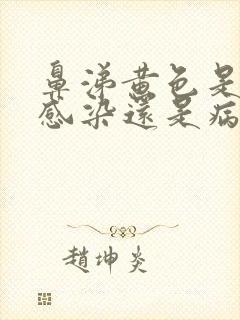 鼻涕黄色是
感染還是病
趙坤炎